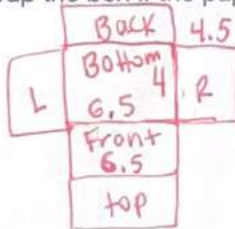 Back 4.5
Bottom
4
L 6.5 R
Front
6.5
top